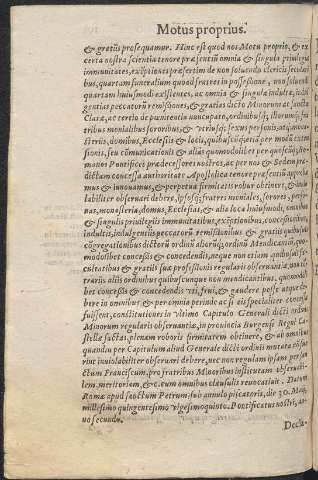 Motus proprius.
& gratijs prosequamur. Hinc est quod nos Motu proprio, & ex
certa nostra scientia tenore præsentiũ omnia & singula priuilegia
immunitates, exẽptiones præsertim de non soluendo clericis secularibus,
quartam funeralium quod fratres in possessione, non soluendi
quartam huiusmodi existentes, ac omnia & singula indulta, indulgentias
peccatorũ remissiones, & gratias dicto Minorum ac sanctæ
Claræ, ac certio de pænitentia nuncupato, ordinibus, illorumq; fratribus
monialibus sororibus, & vtriusq; sexus personis, atq; monasterijs,
domibus, Ecclesijs & locis, quibuscũq; etiã per modũ extensionis,
seu cõmunicationis & aliàs quomodolibet per quoscũq; Romanos
Pontifices prædecessores nostros, ac per nos & Sedem prædictam
concessa authoritate Apostolica tenore præsentiũ approbamus
& innouamus, & perpetuæ firmitatis robur obtinere, & inuiolabiliter
obseruari debere, ipsosq; fratres moniales, sorores, personas,
monasteria, domus, Ecclesias, & alia loca huiusmodi, omnibus
& singulis priuilegijs immunitatibus, exẽptionibus, concessionibus,
indultis, indulgentijs peccatorũ remissionibus & gratijs quibusuis
cõgregationibus dictorũ ordinũ aliorũq; ordinũ Mendicantiũ, quomodolibet
concessis & concedendis, necque non etiam quibusuis facultatibus
& gratijs suæ professionis regularis obseruantiæ
alijs ordinibus quibuscunque non mendicantibus, quomodolibet
concessis & concedendis vti, frui, & gaudere posse atque debere
in omnibus & per omnia perinde ac si eis specialiter concessa
fuissent, constitutiones in vltimo Capitulo Generali dicti ordinis
Minorum regularis obseruantiæ, in prouincia Burgensi Regni Castellæ
factas, plenam roboris firmitatem obtinere, & ab omnibus
quandiu per Capitulum aliud Generale dicti ordinis mutatæ nõ fuerint
inuiolabiliter obseruari debere, nec non regulam ipsam per sanctum
Franciscum, pro fratribus Minoribus institutam obseruari
meritoriam, &c. cum omnibus clausulis reuocatiuis. Datum
Romæ apud sanctum Petrum, sub annulo piscatoris, die 30. Maij,
millesimo quingentesimo vigesimoquinto. Pontificatus nostri, anno
secundo.
Decla-